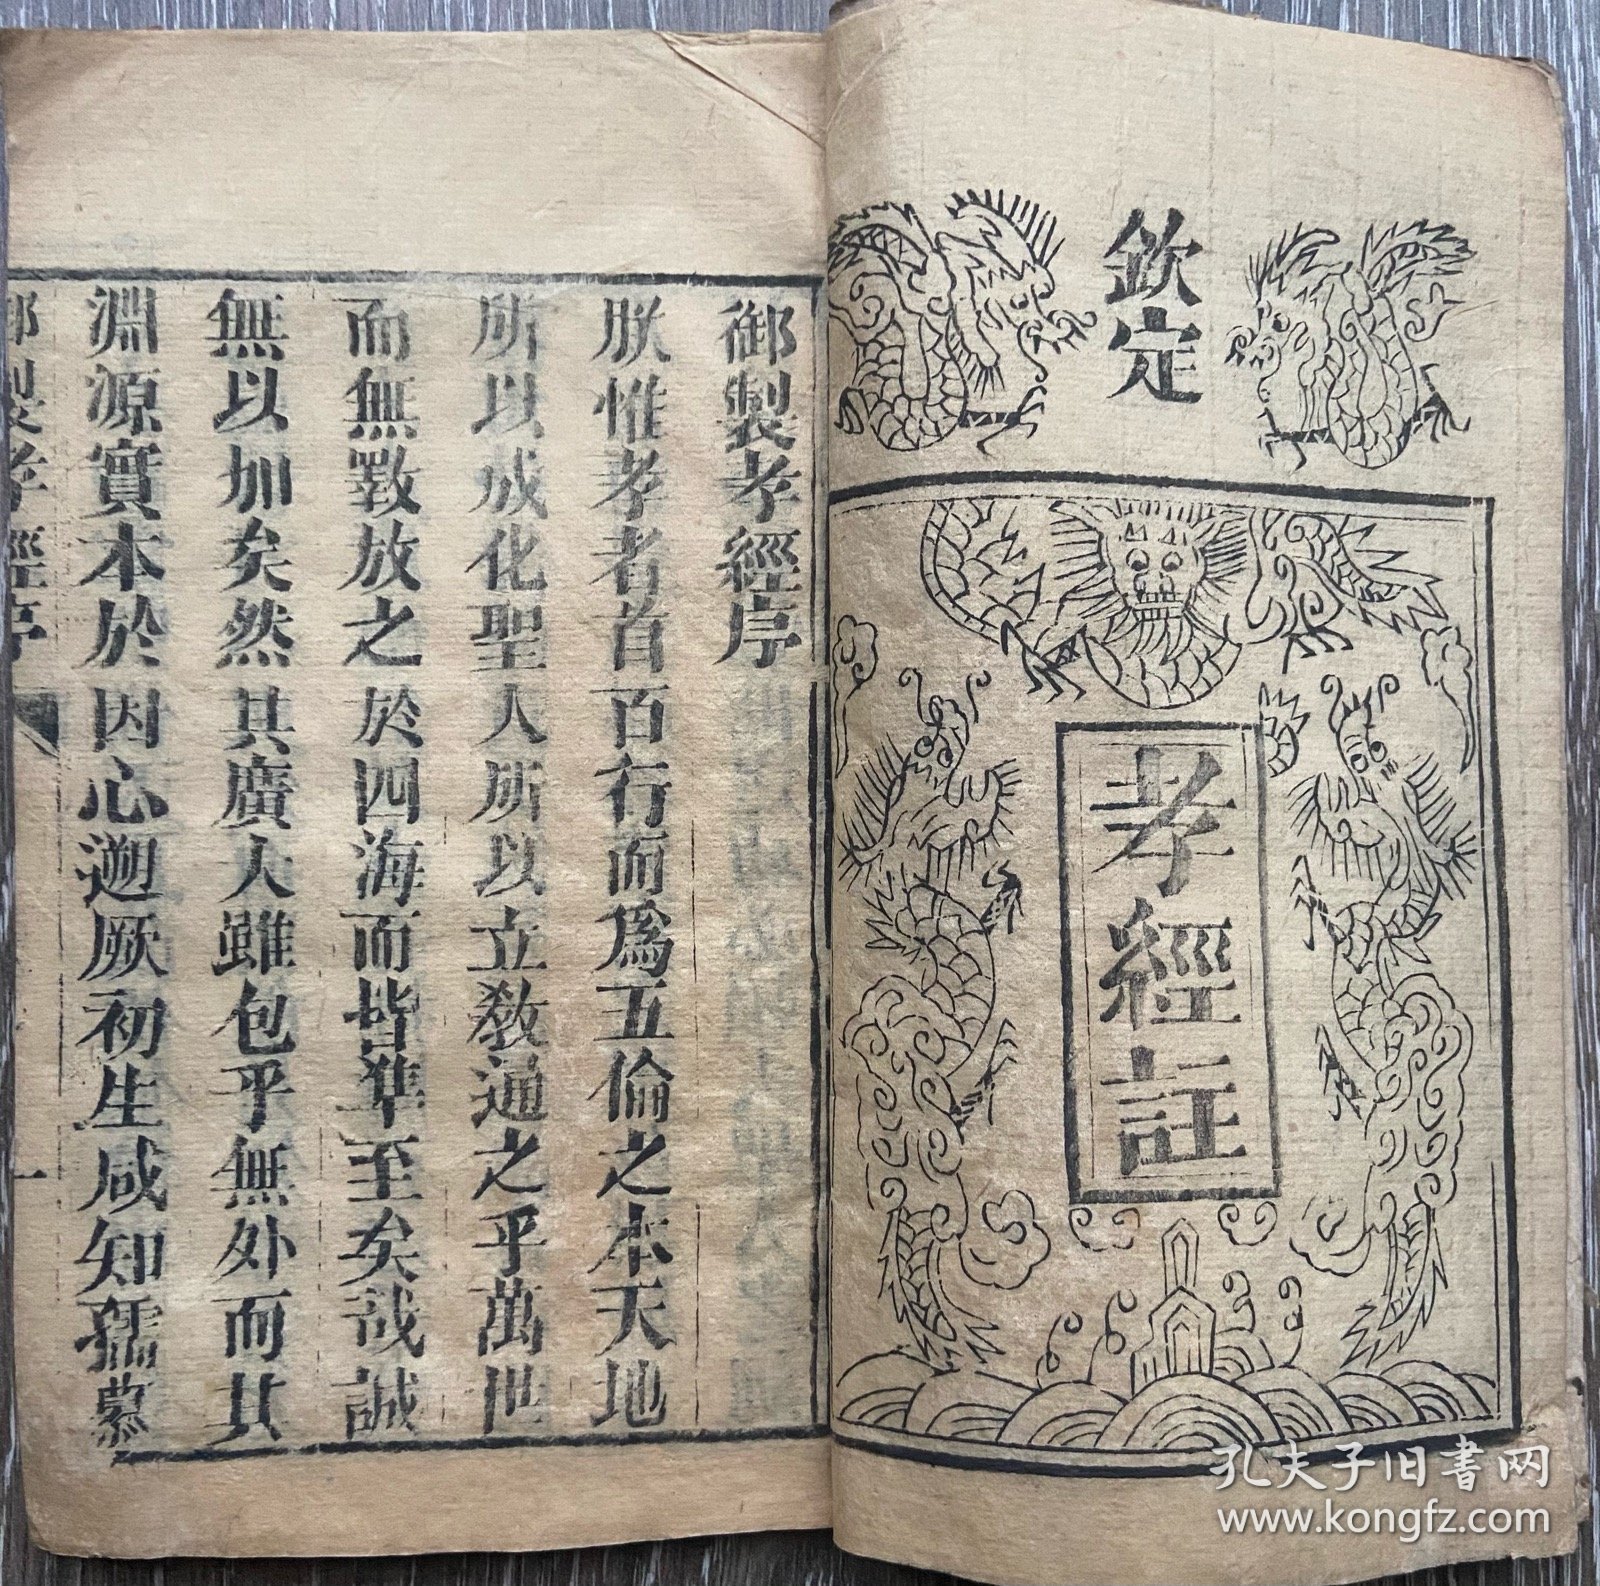 欽定
孝經註
御製孝經序
朕惟孝者首百行而為五倫之本天地
所以成化聖人所以立教通之乎萬世
而無斁放之於四海而皆準至矣哉誠
無以加矣然其廣大雖包乎無外而其
淵源實本於因心遡厥初生咸知孺慕
御製孝經序
一
孔夫子旧书网
www.kongfz.com